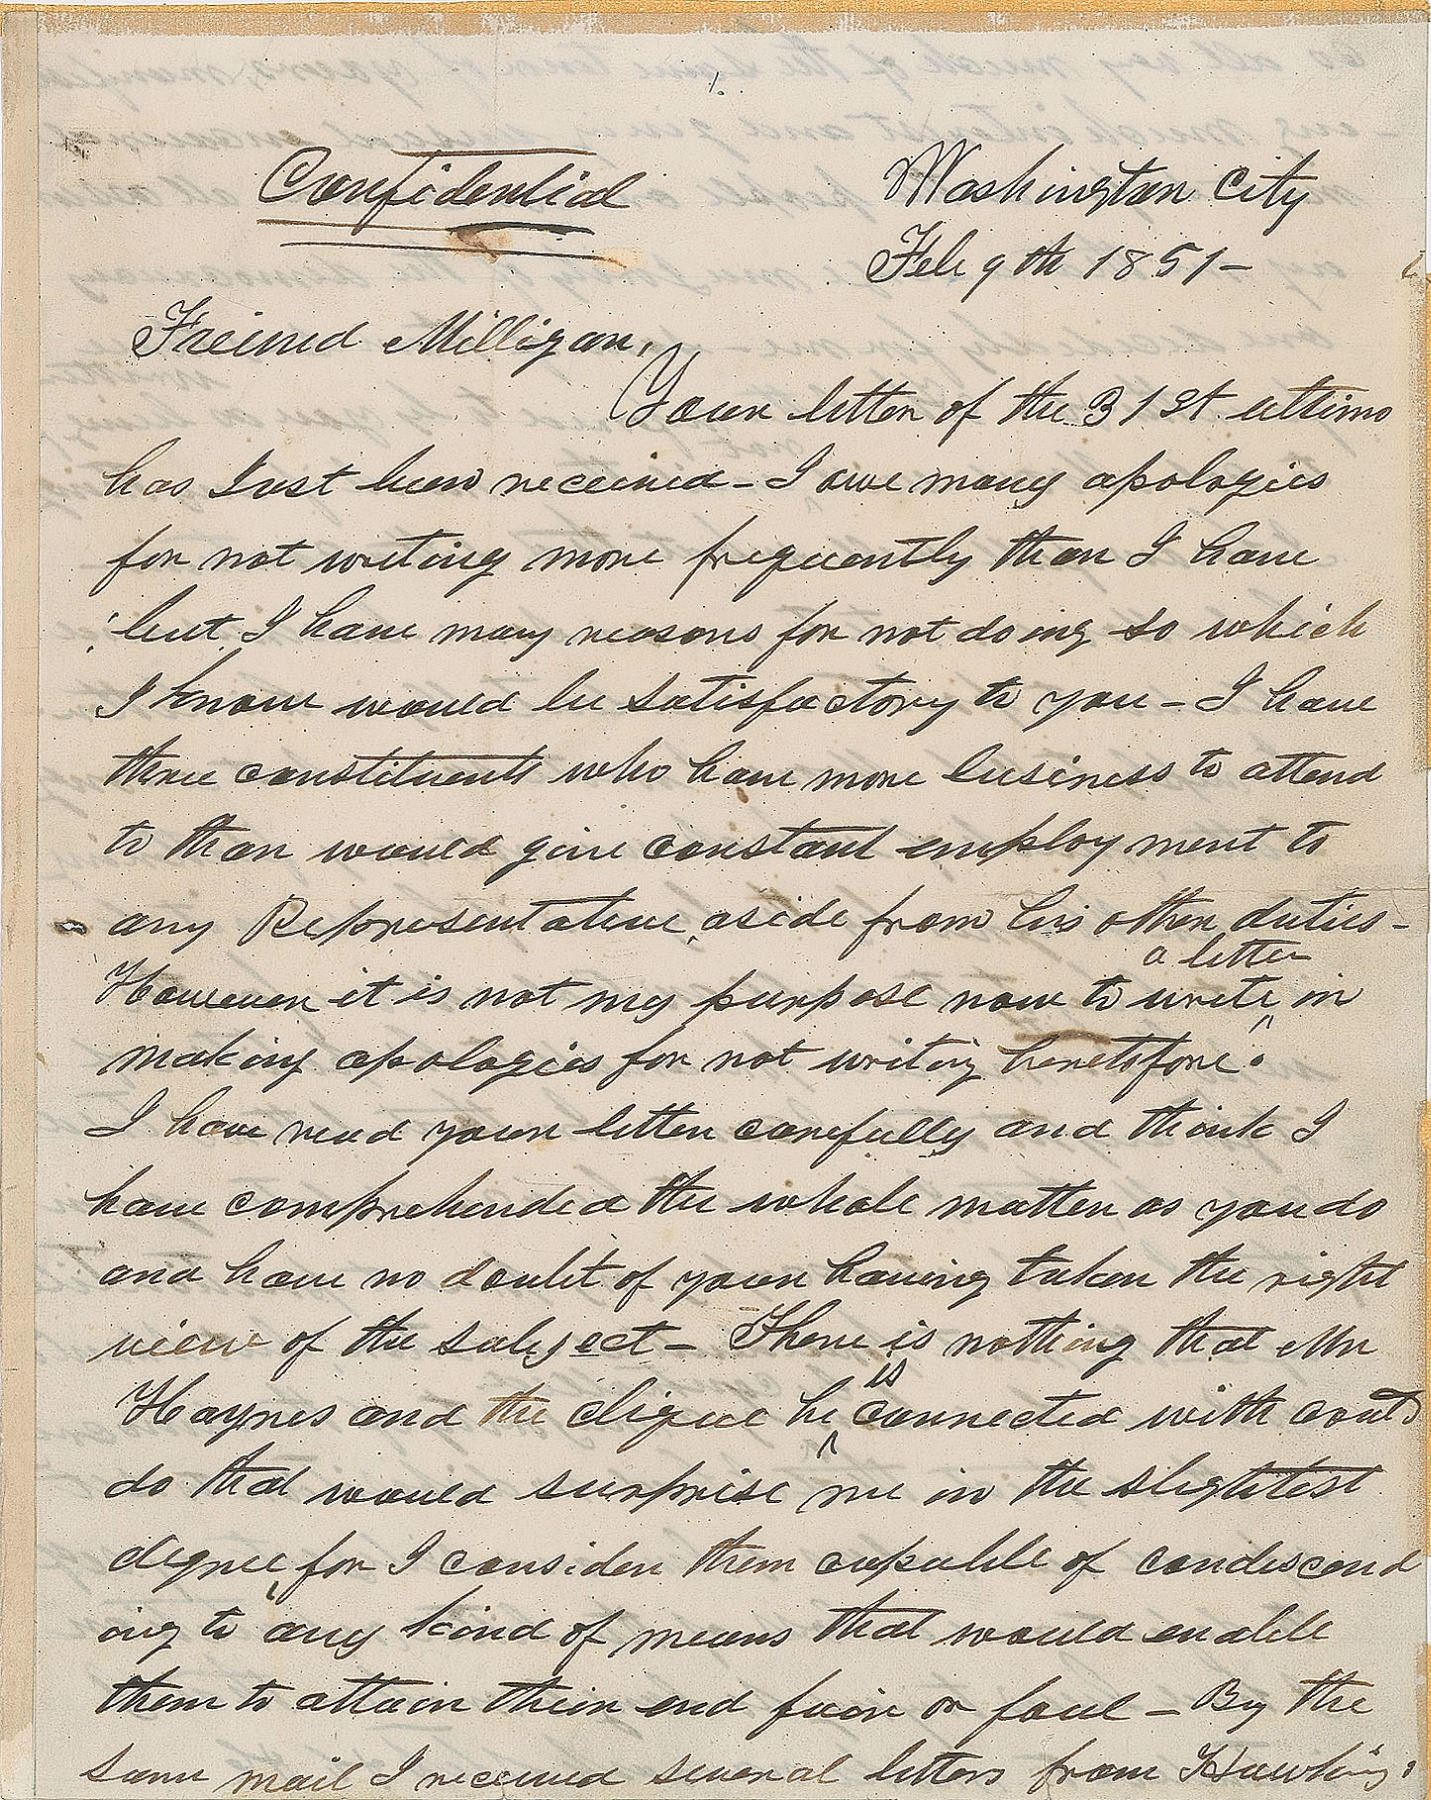 1.
Confidential
Washington City
Feb 9th 1851-
Freiend Milligan,
Your letter of the 31st ultimo
has Just been received - I owe many apologies
for not writing more frequently than I have
but I have many reasons for not doing so which
I know would be satisfactory to you - I have
three constituents who have more business to attend
to than would give constant employment to
any Representative, aside from his other duties -
a letter
However it is not my purpose now to write in
making apologies for not writing heretofore.
I have read your letter carefully and think I
have comprehended the whole matter as you do
and have no doubt of your having taken the right
view of the subject - There is nothing that Mr
is
Haynes and the clique he connected with could
do that would surprise me in the slightest
degree, for I consider them capable of condescend
ing to any kind of means that would enable
them to attain their end fair or foul - By the
same mail I received several letters from Hawkins